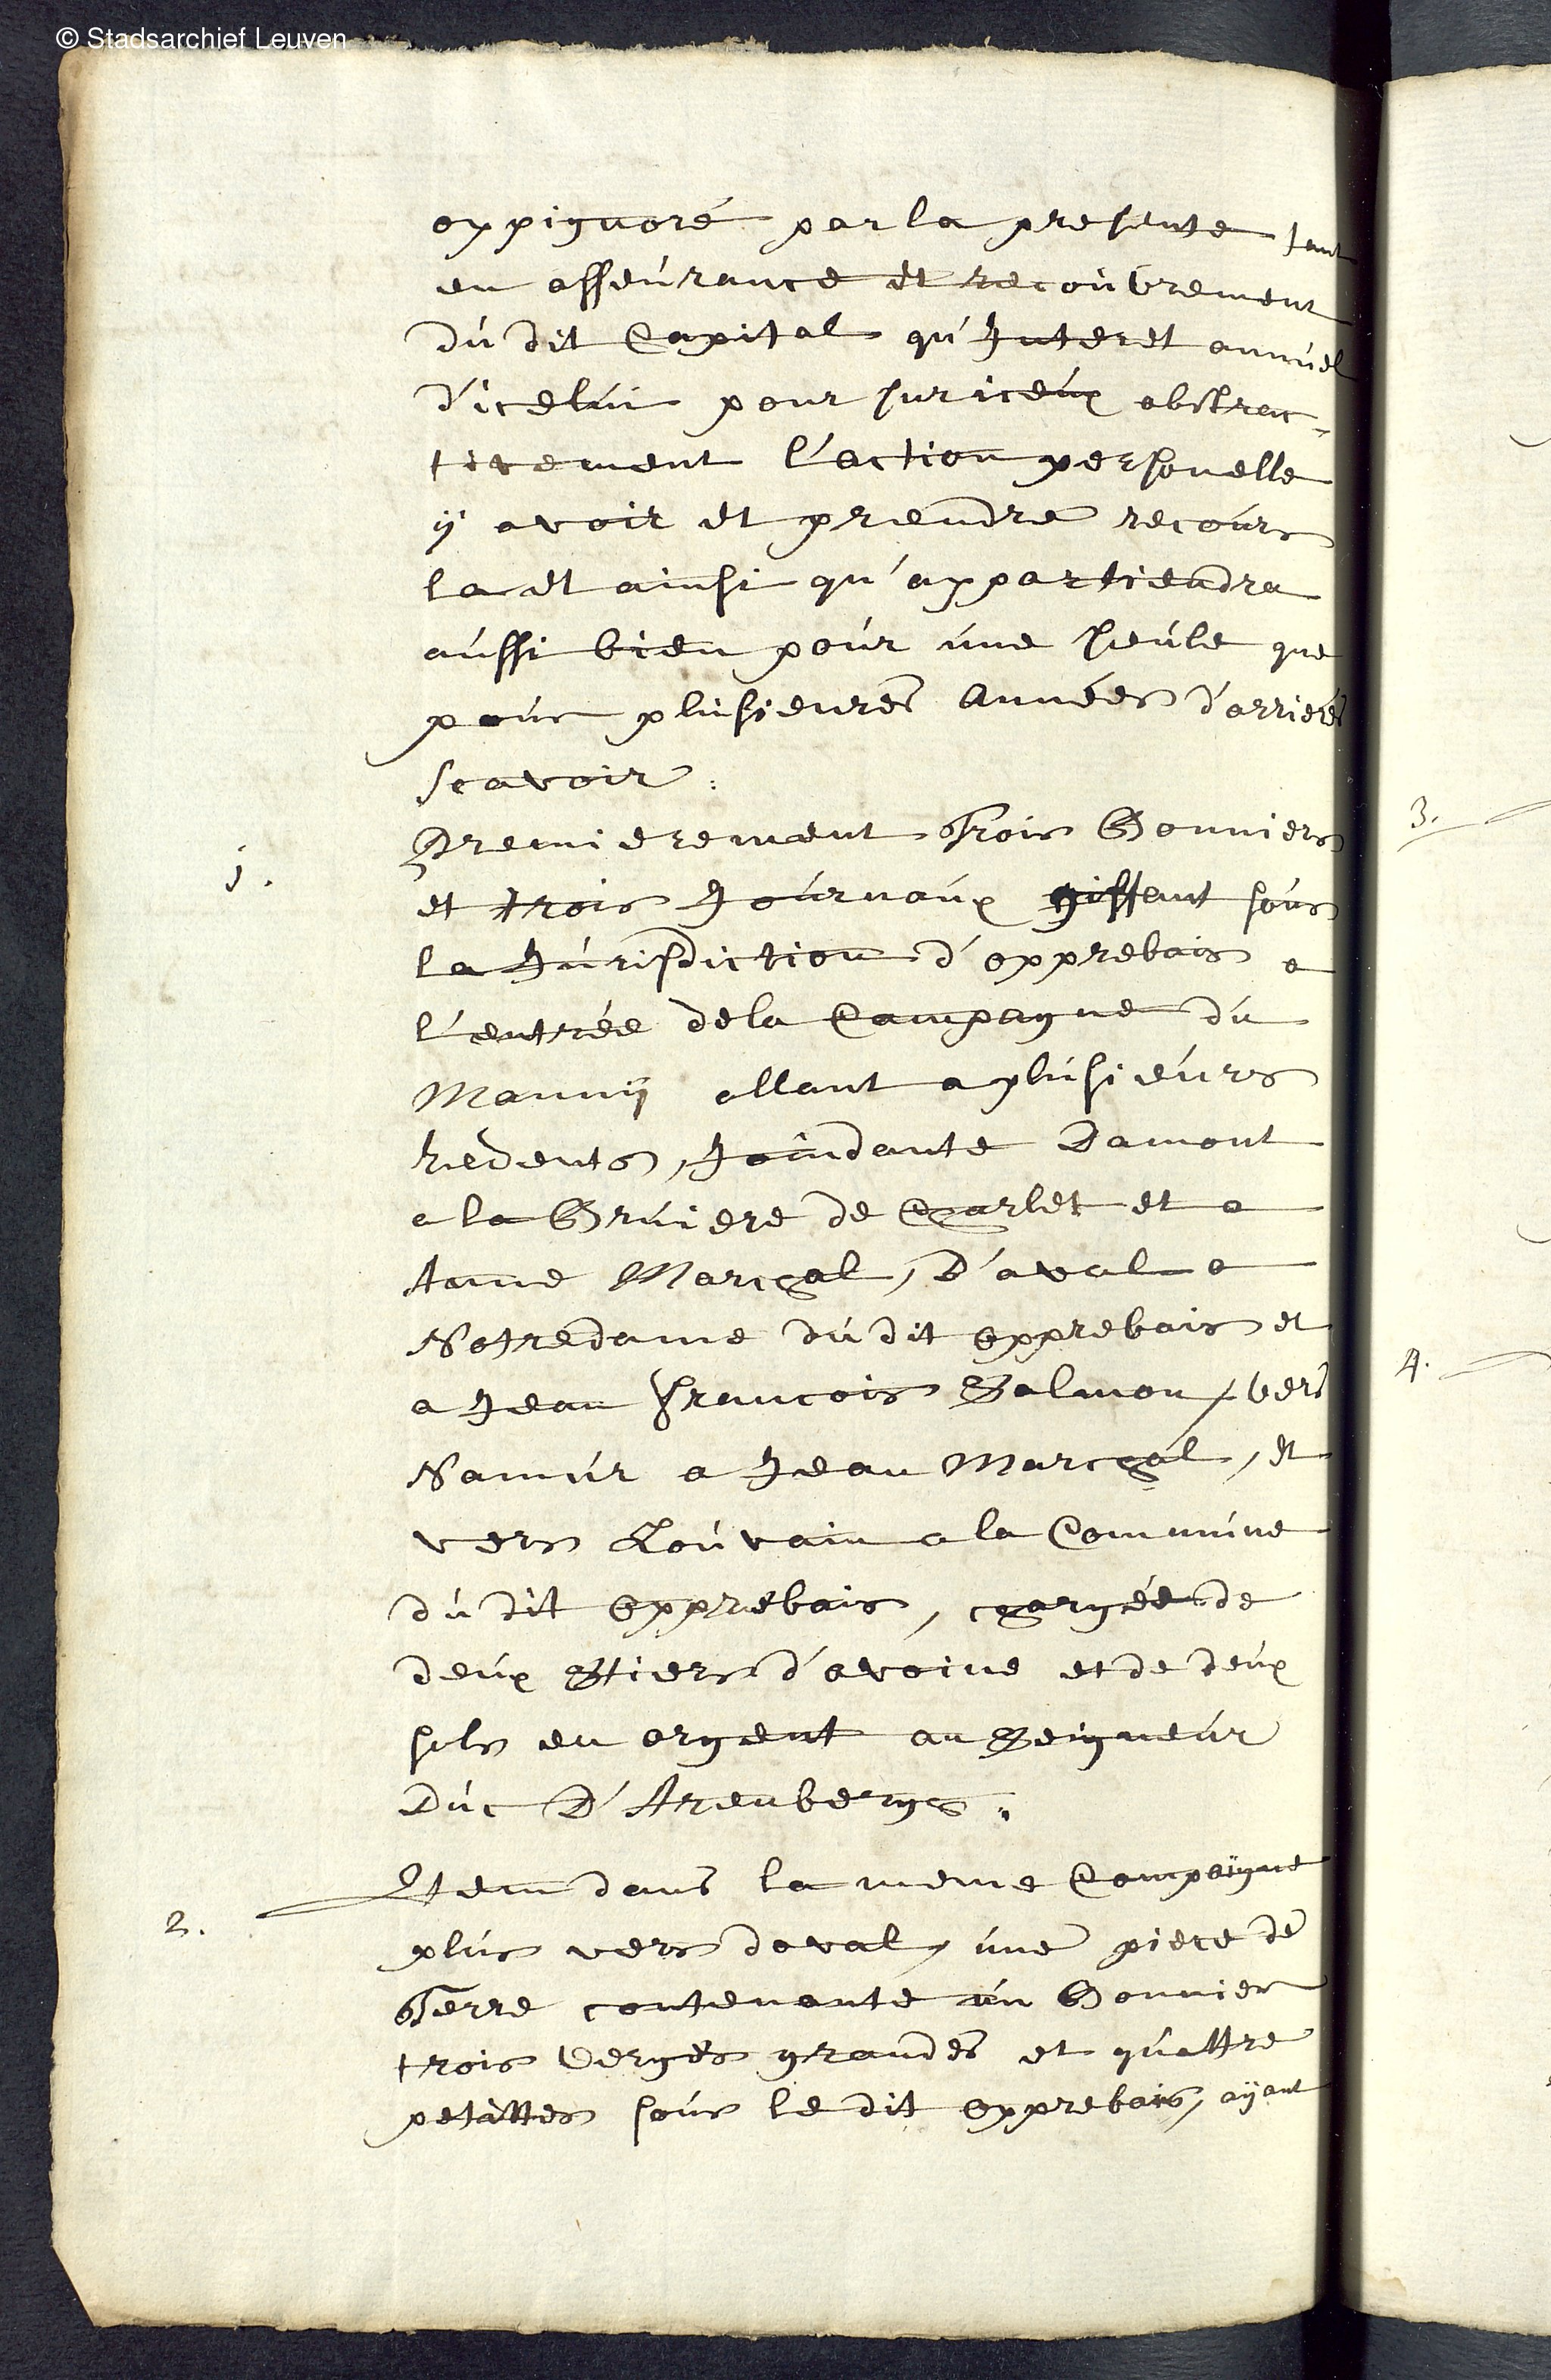 © Stadsarchief Leuven
oppignoré par la presente tant
en asseúrance et recoúvrement
dú dit Capital qu'Jnteret annúel
d'icelúi pour sur iceúx abstrac-
tivement l'action personelle
ÿ avoir et prendre recoúrs
la et ainsi qu'appartiendra
aússi bien poúr úne seúle que
poúr plúsieures Années d'arrierés
scavoir:
1. Premierement Trois Bonniers
et trois Joúrnaúx gissant soús
la Júrisdiction d'opprebais a
l'entrée dela Campagne du
Mannij allant a plúsieúrs
redents, Joindante Damont
a la Brúiere de Charlet et a
Anne Marchal, D'aval a
Notredame dú dit opprebais et
a Jean Francois Salmon, vers
Namúr a Jean Marchal, et
vers Loúvain a la Commúne
dú dit opprebais, chargée de
deúx Stiers d'avoine et de deúx
sols en argent au Seigneúr
Dúc D'Arenbergh.
2. Item dans la meme Campaigne
plús vers daval, úne piece de
Terre contenante ún Bonnier
trois verges grandes et qúattre
petittes soús le dit opprebais, aÿant
3.
4.